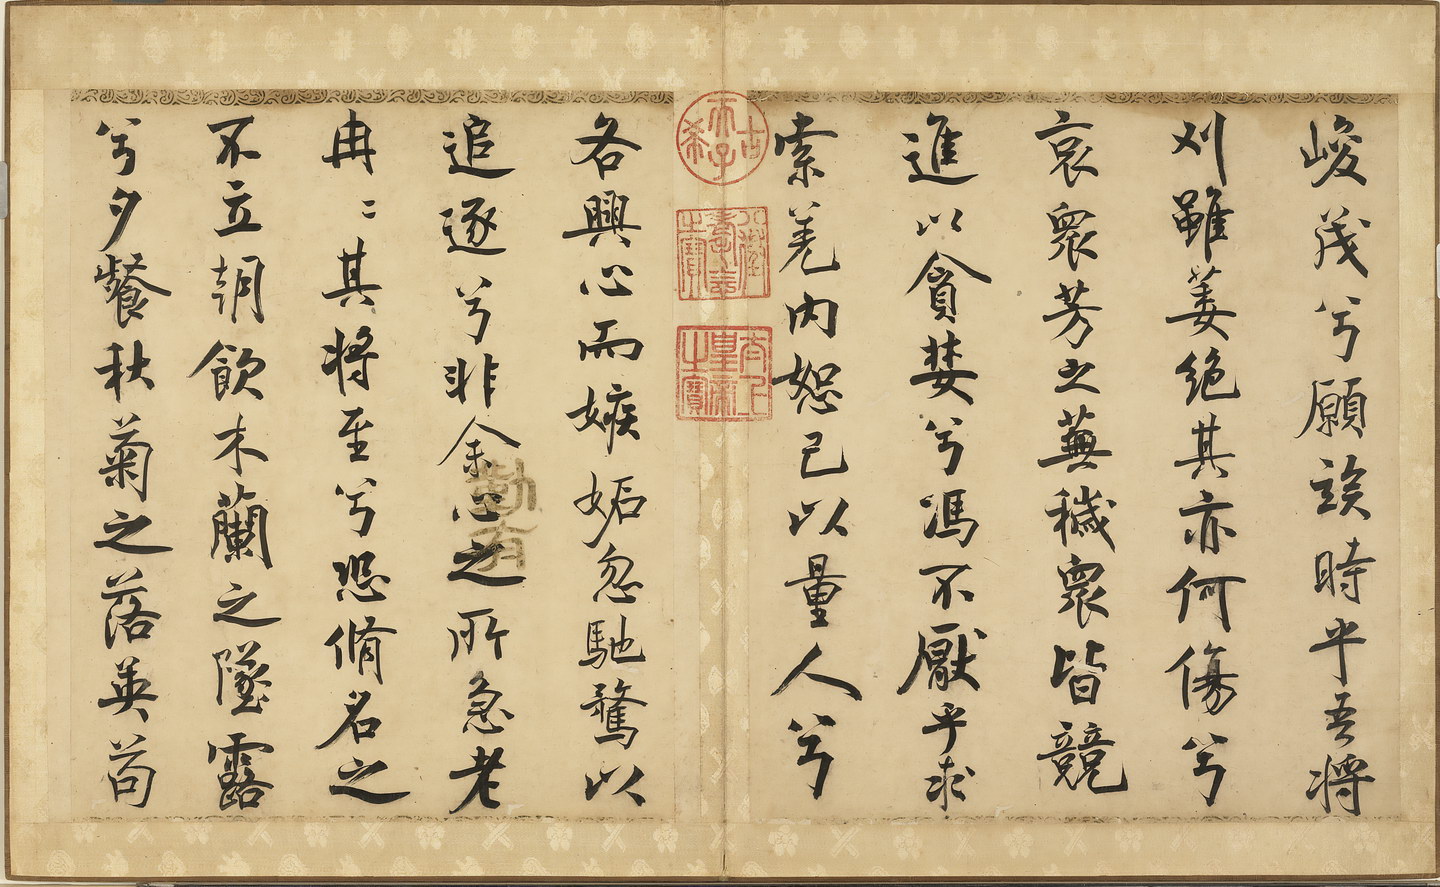 峻茂兮願竢時乎吾將
刈雖萎絕其亦何傷兮
哀衆芳之蕪穢衆皆競
進以貪婪兮馮不厭乎求
索羌內恕己以量人兮
古希天子
八徵耄念之寶
太上皇帝之寶
各興心而嫉妬忽馳騖以
追逐兮非余心之所急老
冉〻其將至兮恐脩名之
不立朝飲木蘭之墜露
兮夕餐秋菊之落英苟
勤有